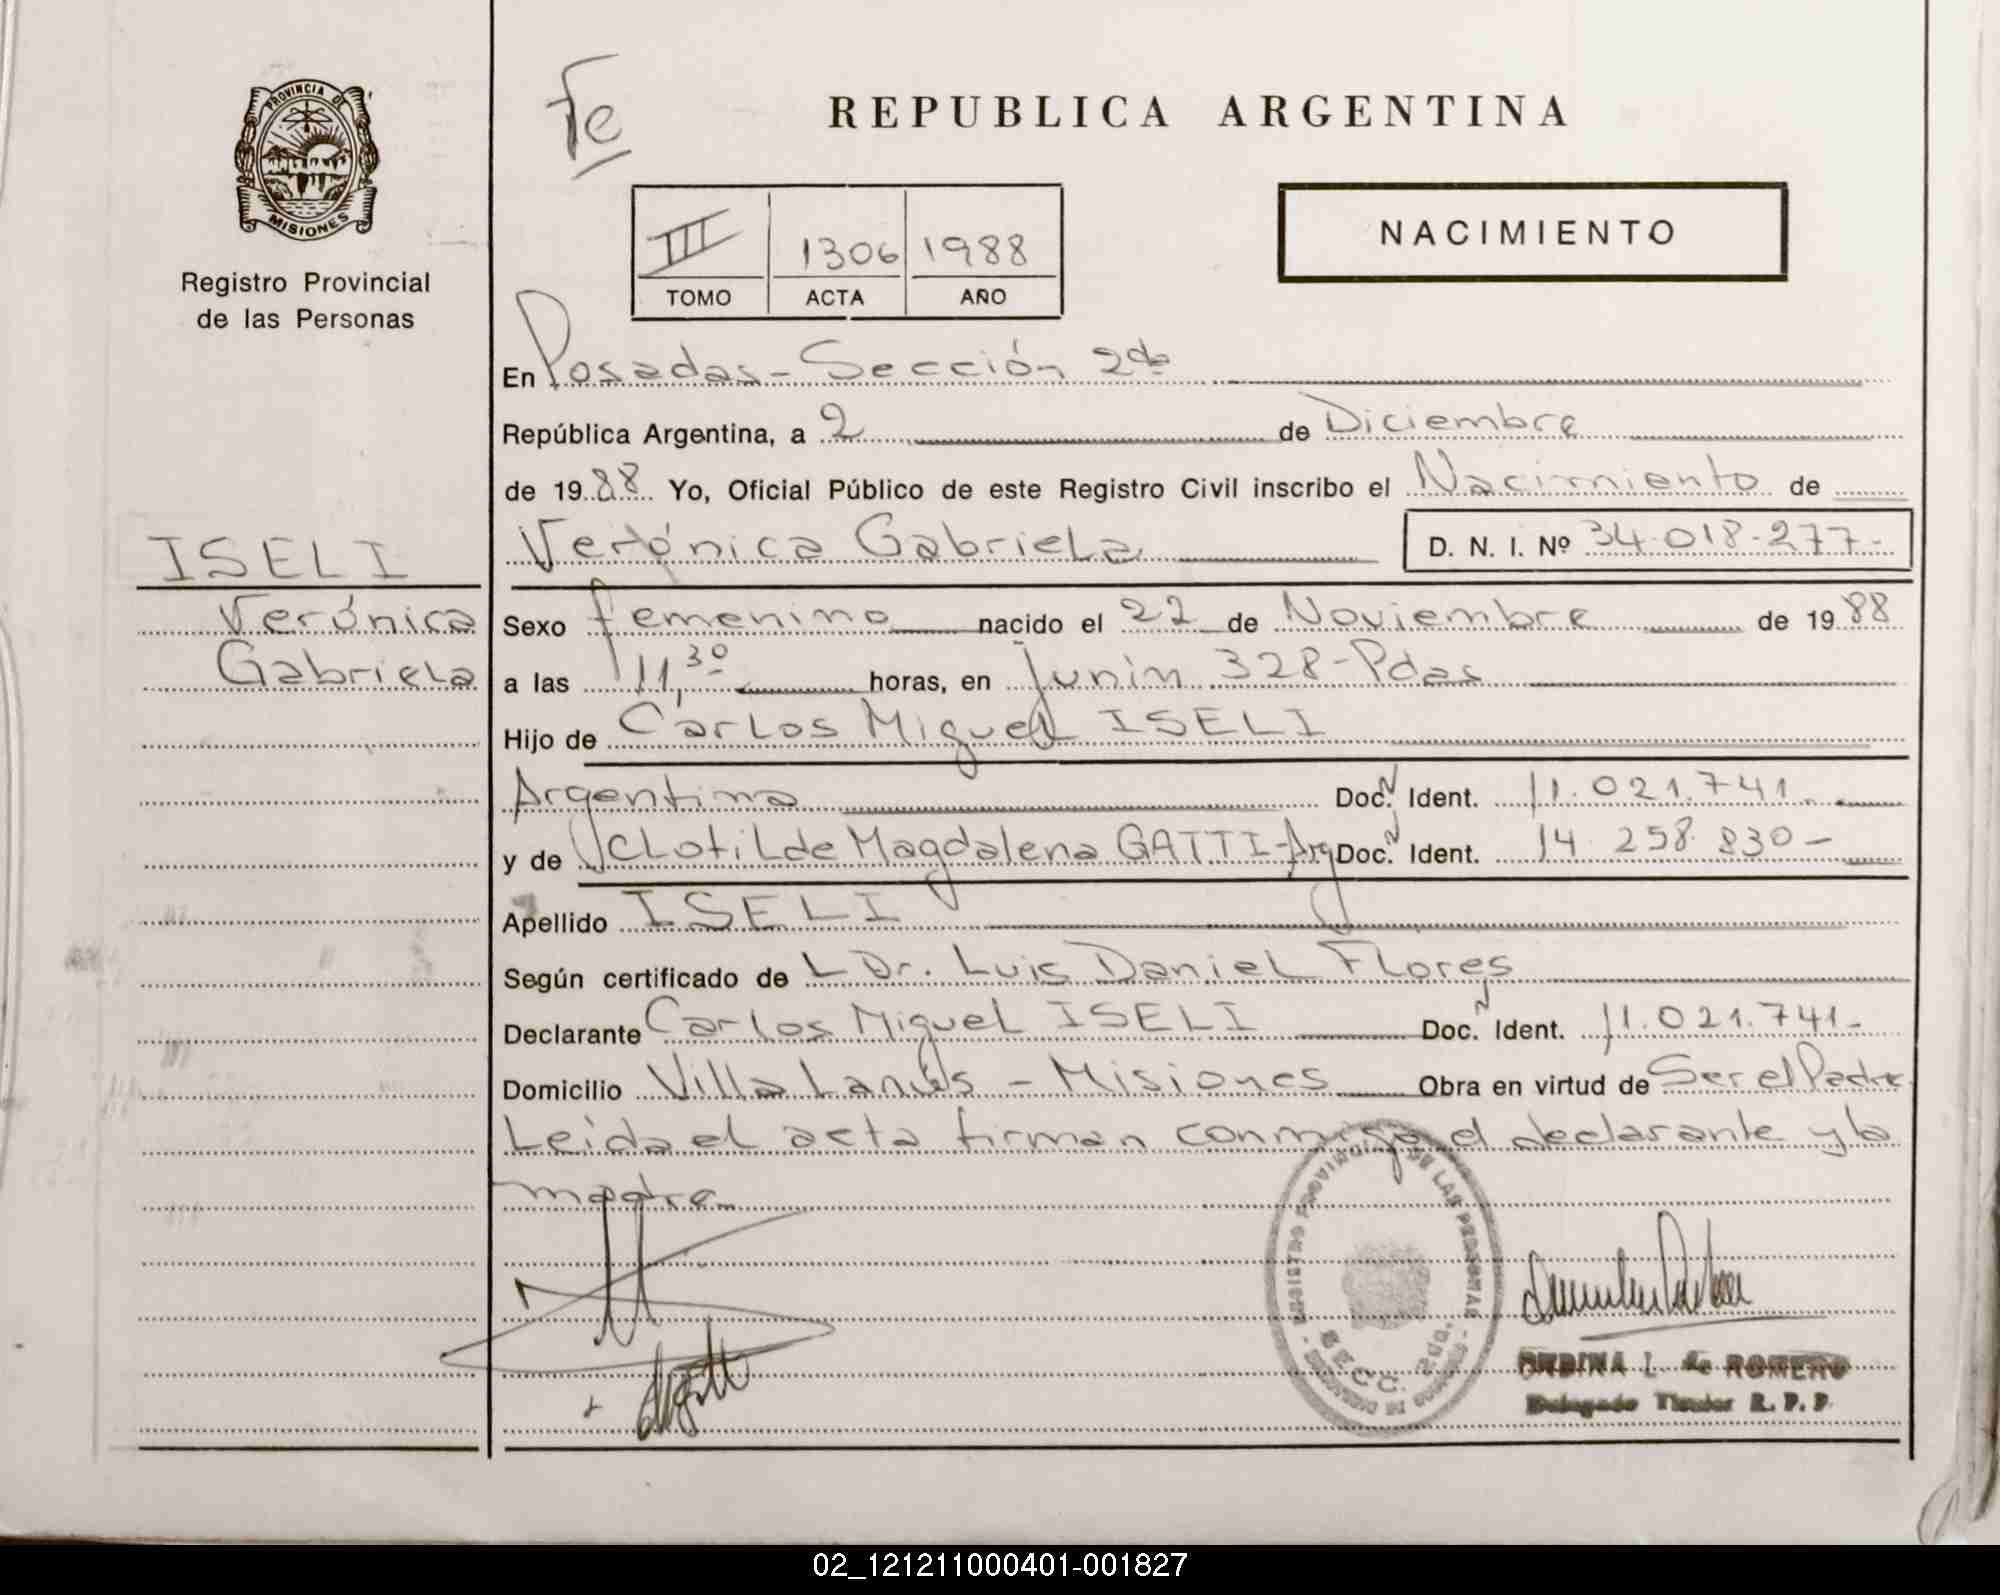 Fe
REPUBLICA ARGENTINA
PROVINCIA DE
MISIONES
Registro Provincial
de las Personas
III 1306 1988
TOMO ACTA AÑO
NACIMIENTO
En Posadas - Sección 2da
República Argentina, a 2 de Diciembre
de 1988 Yo, Oficial Público de este Registro Civil inscribo el Nacimiento de
ISELI
Verónica Gabriela D. N. I. Nº 34.018.277-
Verónica
Gabriela
Sexo femenino nacido el 22 de Noviembre de 1988
a las 11,30 horas, en Junin 328 - Pdas
Hijo de Carlos Miguel ISELI
Argentina Doc. N Ident. 11.021.741.
y de Clotilde Magdalena GATTI - Arg Doc. N Ident. 14.258.830-
Apellido ISELI
Según certificado de L Dr. Luis Daniel Flores
Declarante Carlos Miguel ISELI Doc. N Ident. 11.021.741-
Domicilio Villa Lanús - Misiones Obra en virtud de Ser el Padre
Leida el acta firman conmigo el declarante y la
madre
REGISTRO PROVINCIAL DE LAS PERSONAS
SECC. 2da.
L. de ROMERO
Delegado Titular R. P. P.
02_121211000401-001827